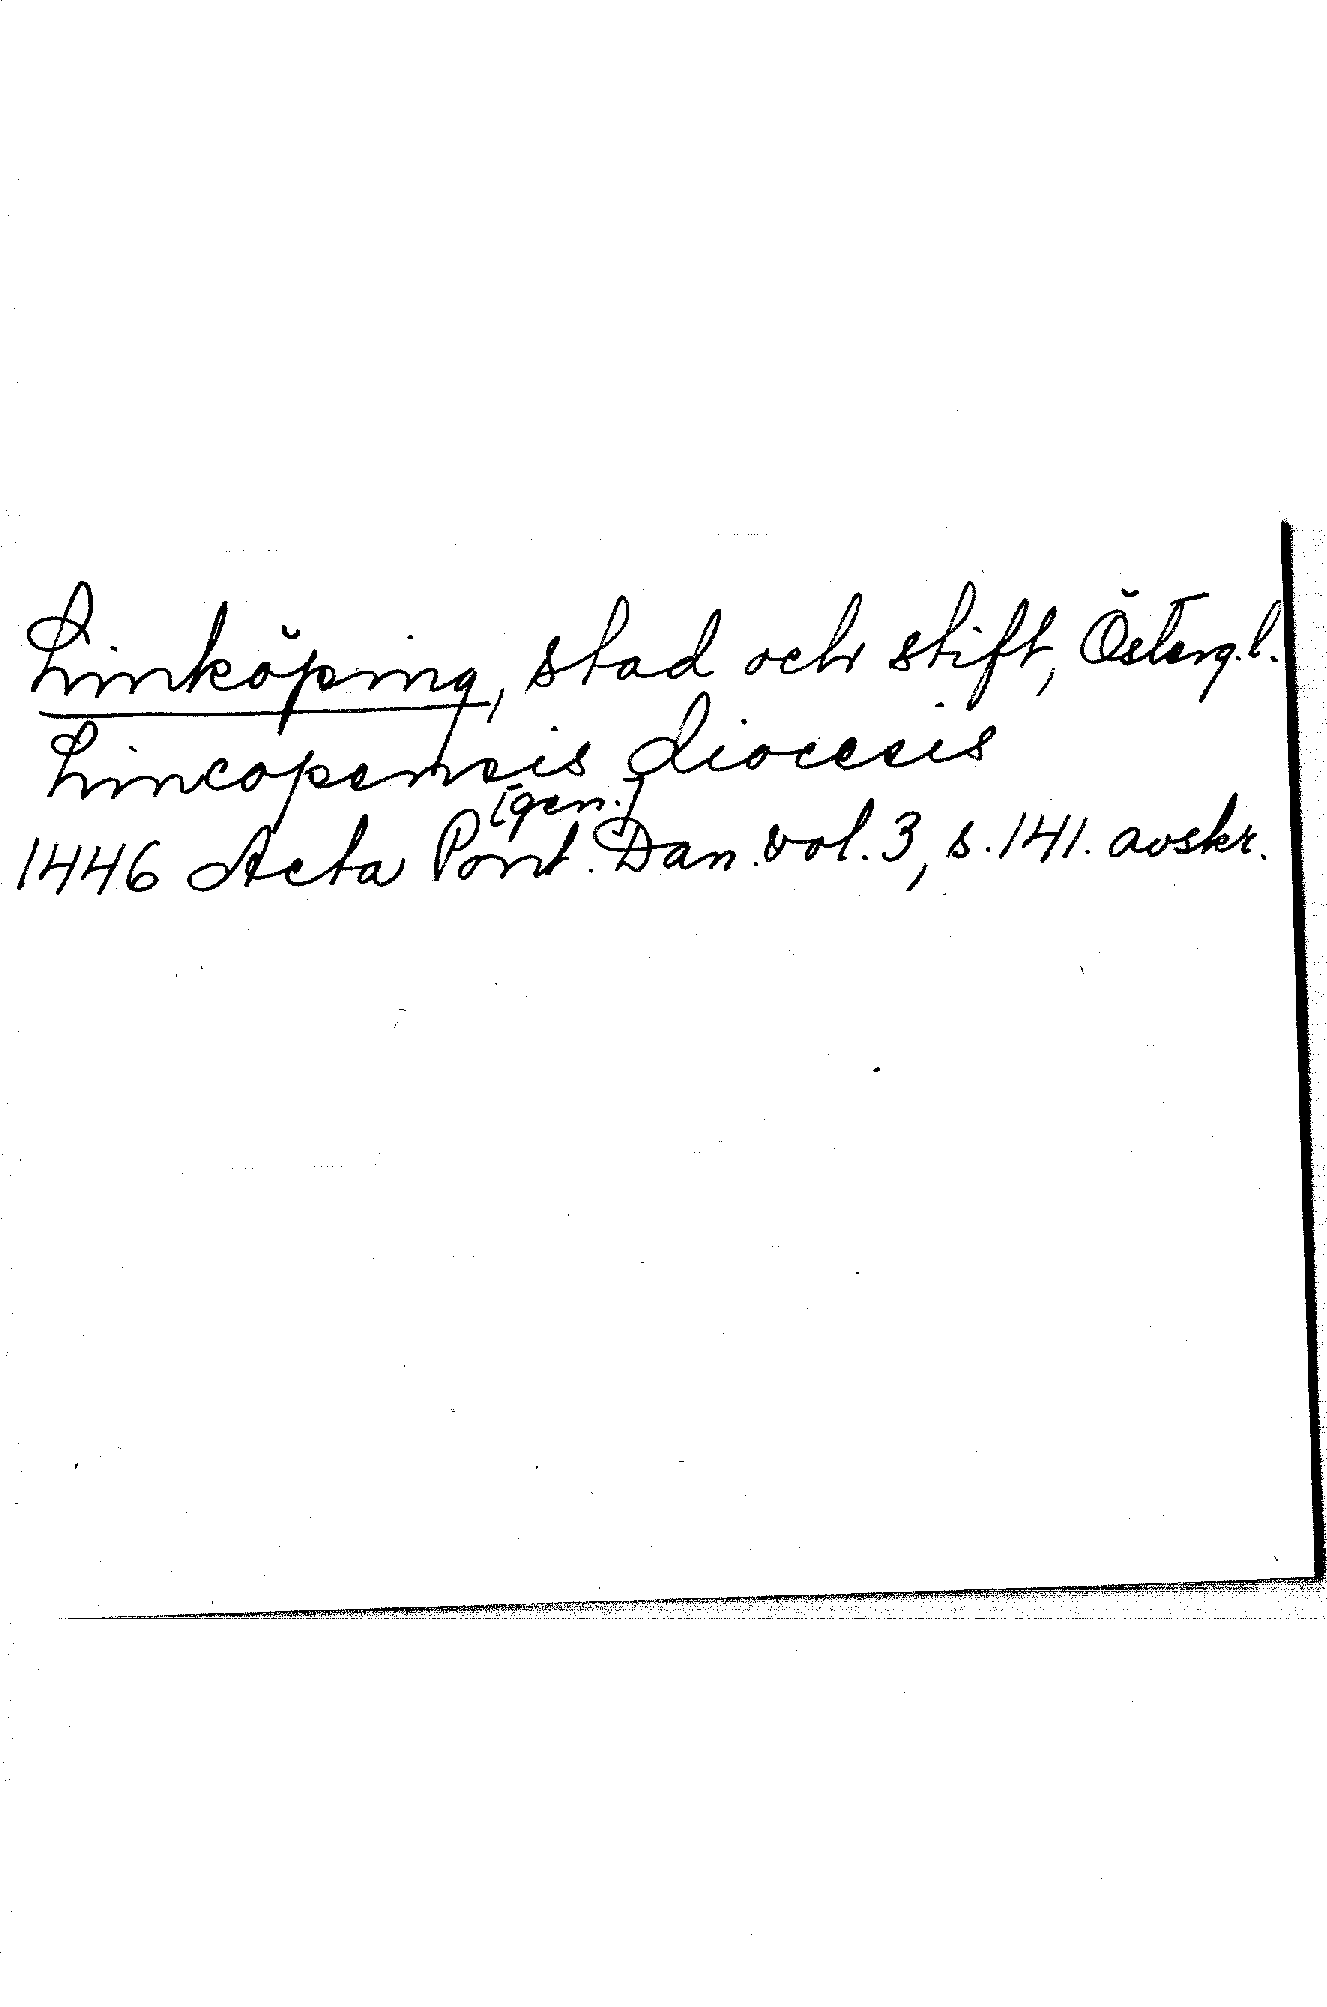 Linköping, stad och stift, Österg.l.
Lincopensis diocesis
[gen.]
1446 Acta Pont. Dan. vol. 3, s. 141. avskr.